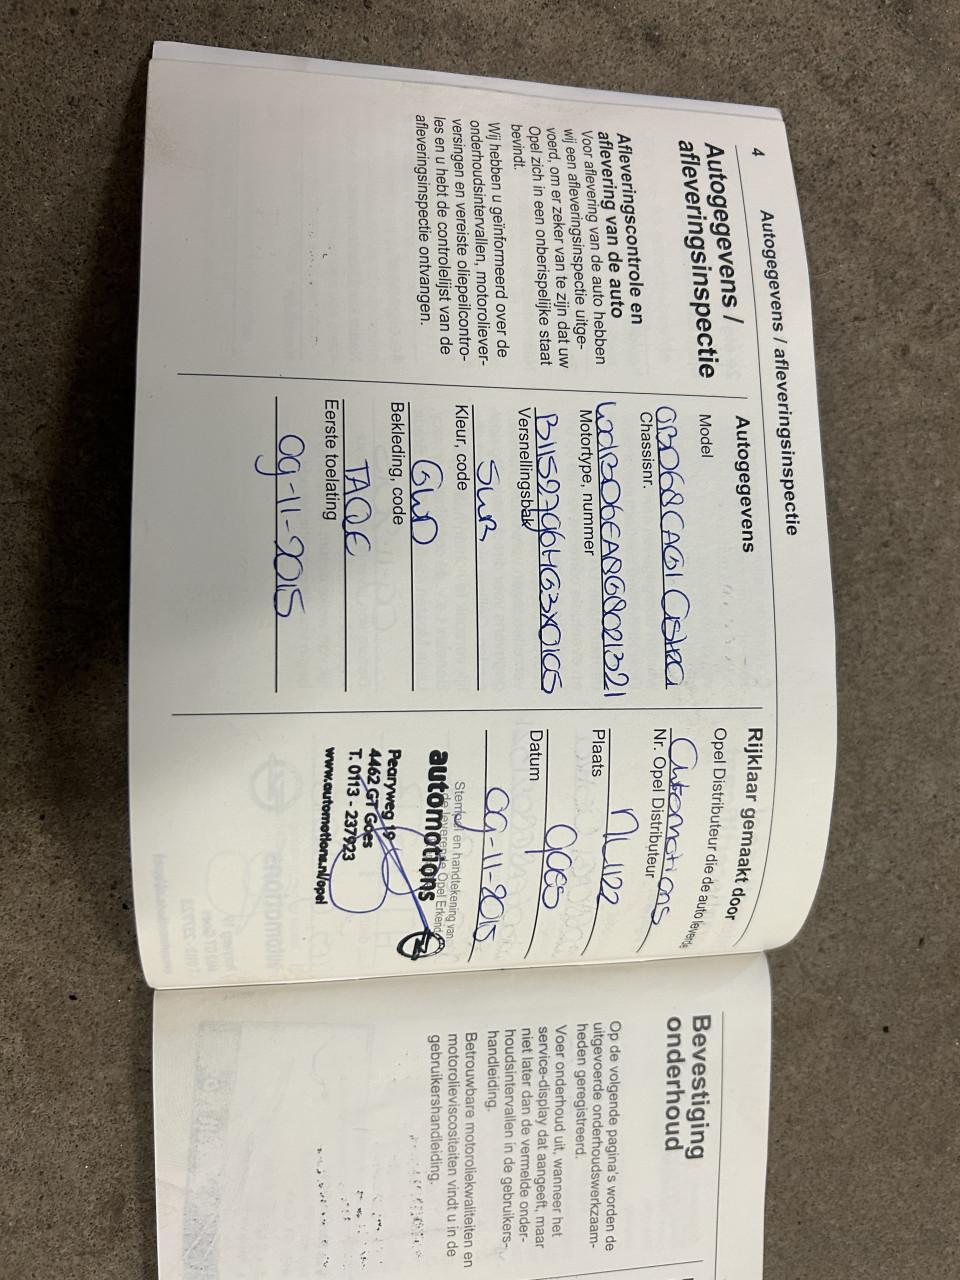 4
Autogegevens / afleveringsinspectie
Autogegevens /
afleveringsinspectie
Afleveringscontrole en
aflevering van de auto
Voor aflevering van de auto hebben
wij een afleveringsinspectie uitge-
voerd, om er zeker van te zijn dat uw
Opel zich in een onberispelijke staat
bevindt.
Wij hebben u geïnformeerd over de
onderhoudsintervallen, motoroliever-
versingen en vereiste oliepeilcontro-
les en u hebt de controlelijst van de
afleveringsinspectie ontvangen.
Autogegevens
Model
Chassisnr.
Motortype, nummer
Versnellingsbak
SUR
Kleur, code
GWD
Bekleding, code
TAQE
Eerste toelating
09-11-2015
Rijklaar gemaakt door
Opel Distributeur die de auto leverde
Automotions
Nr. Opel Distributeur
NL1122
Plaats
goes
Datum
09-11-2015
Stempel en handtekening van
de leverende Opel Erkend
automotions
Pearyweg 19
4462 GT Goes
T. 0113 - 237923
www.automotions.nl/opel
Bevestiging
onderhoud
Op de volgende pagina's worden de
uitgevoerde onderhoudswerkzaam-
heden geregistreerd.
Voer onderhoud uit, wanneer het
service-display dat aangeeft, maar
niet later dan de vermelde onder-
houdsintervallen in de gebruikers-
handleiding.
Betrouwbare motoroliekwaliteiten en
motorolieviscositeiten vindt u in de
gebruikershandleiding.